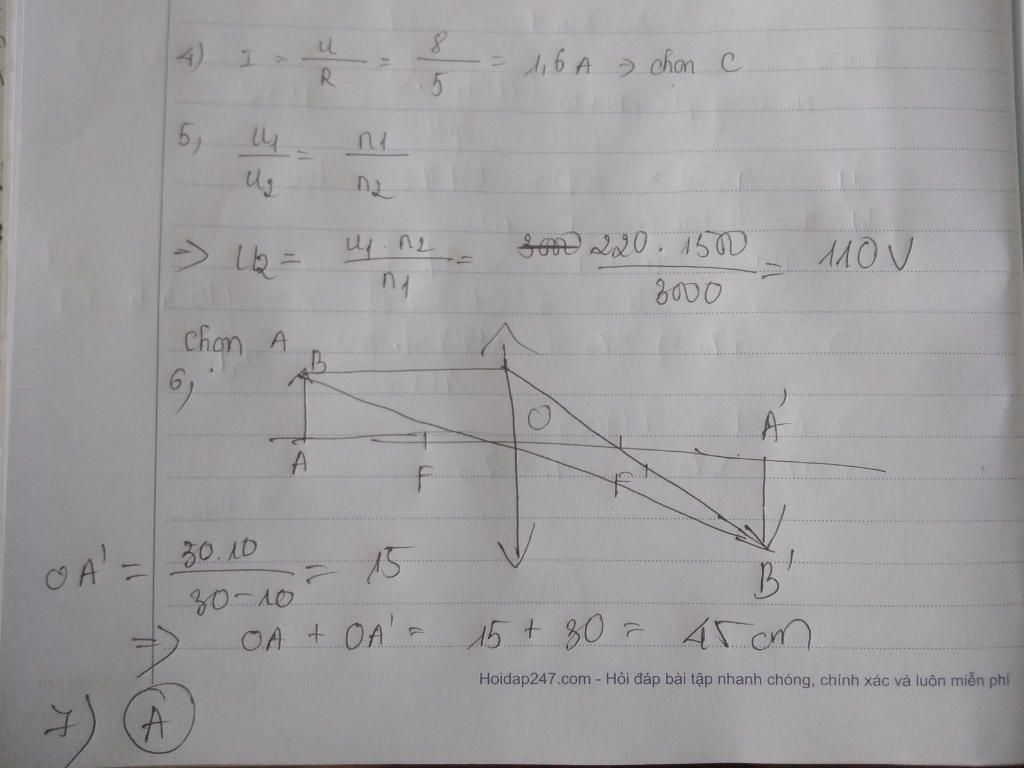 4) I = u/R = 8/5 = 1,6 A => chọn C
5, u1/u2 = n1/n2
=> U2 = u1.n2/n1 = 3000 220.1500/3000 = 110V
Chọn A
6,
B
O
A'
A F F'
B'
OA' = 30.10/30-10 = 15
=> OA + OA' = 15 + 30 = 45 cm
Hoidap247.com - Hỏi đáp bài tập nhanh chóng, chính xác và luôn miễn phí
7) A